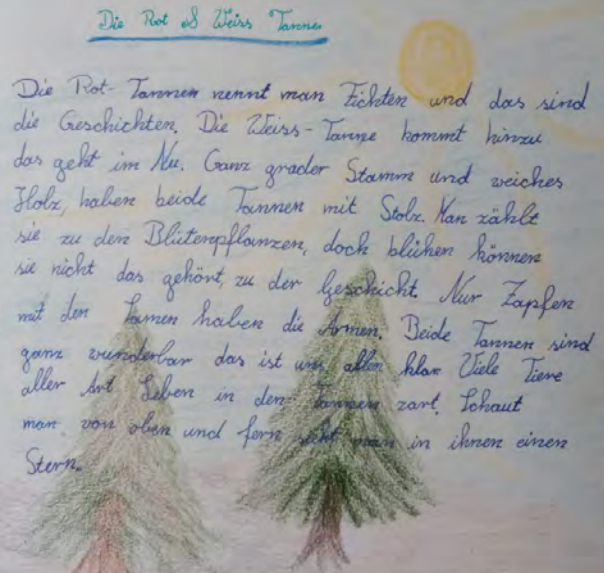 Die Rot & Weiss Tannen
Die Rot-Tannen nennt man Fichten und das sind
die Geschichten. Die Weiss-Tanne kommt hinzu
das geht im Nu. Ganz grader Stamm und weiches
Holz, haben beide Tannen mit Stolz. Man zählt
sie zu den Blütenpflanzen, doch blühen können
sie nicht das gehört, zu der Geschicht. Nur Zapfen
mit den Samen haben die Armen. Beide Tannen sind
ganz wunderbar das ist uns allen klar Viele Tiere
aller Art Leben in den Tannen zart. Schaut
man von oben und fern sieht man in ihnen einen
Stern.